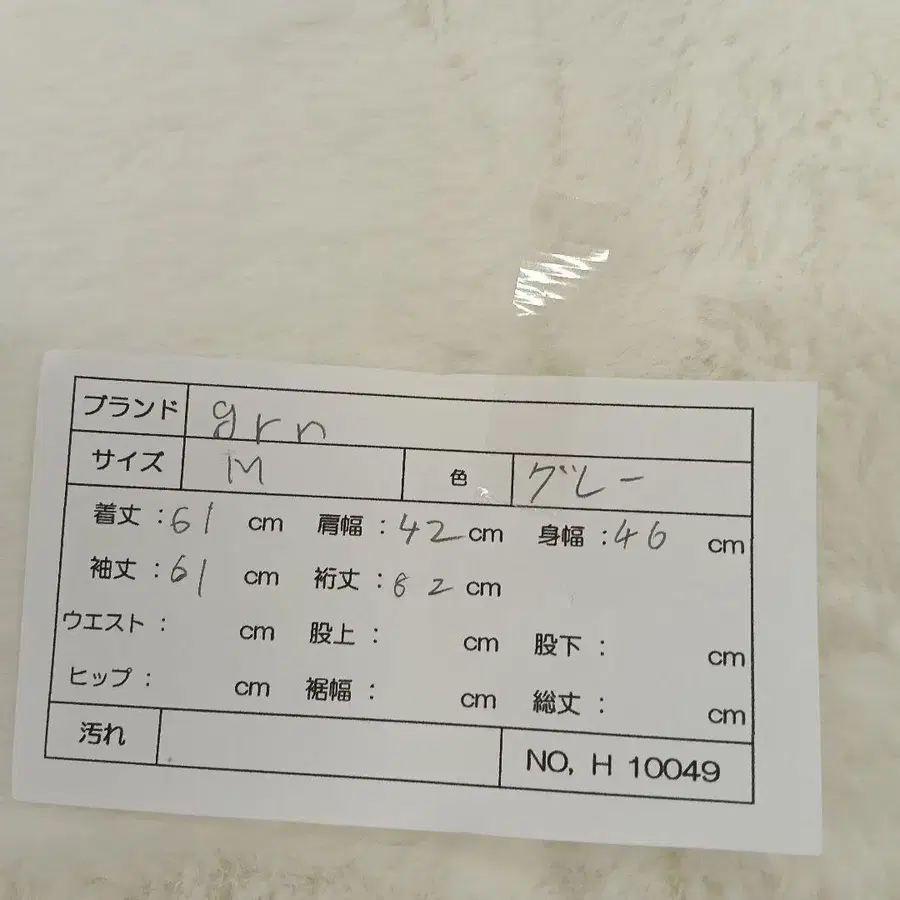 ブランド grn
サイズ M 色 グレー
着丈 :61 cm 肩幅 :42 cm 身幅 :46 cm
袖丈 :61 cm 裄丈 :82 cm
ウエスト : cm 股上 : cm 股下 : cm
ヒップ : cm 裾幅 : cm 総丈 : cm
汚れ NO, H 10049